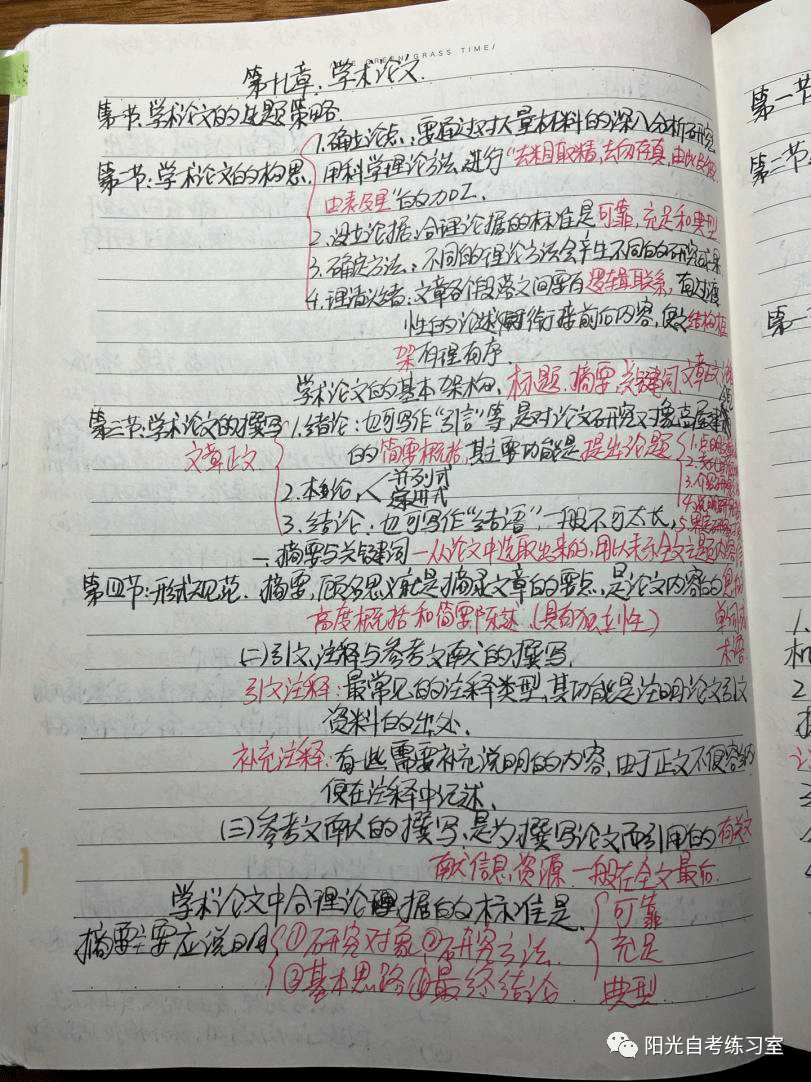 GREEN GRASS TIME/
第十九章：学术论文.
第一节：学术论文的选题策略.
1.确立论点：要通过对大量材料的深入分析研究
第二节：学术论文的构思 用科学理论方法，进行"去粗取精，去伪存真，由此及彼
由表及里"的加工.
2.设立论据：合理论据的标准是可靠，充足和典型
3.确定方法：不同的理论方法会产生不同的研究成果
4.理清思路：文章各个段落之间要有逻辑联系，有过渡
性的论述衔接前后内容，使文结构框
架有理有序.
学术论文的基本架构，标题、摘要、关键词、文章正文
第三节：学术论文的撰写 1.绪论：也可写作"引言"等，是对论文研究对象高屋建瓴
文章正文 的简要概括，其主要功能是提出论题
2.本论， 并列式
递进式
3.结论：也可写作"结语"，一般不可太长，
一、摘要与关键词—从论文中选取出来的，用以表示全文主题内容信
第四节：形式规范. 摘要，顾名思义就是摘录文章的要点，是论文内容的 息的
高度概括和简要陈述（具有独立性） 单词或
术语
(二)引文、注释与参考文献的撰写.
引文注释：最常见的注释类型，其功能是注明论文引文
资料的出处.
补充注释：有一些需要补充说明的内容，由于正文不便容纳
便在注释中记述.
(三)参考文献的撰写，是为撰写论文而引用的有关文
献信息资源 一般在全文最后.
学术论文中合理论据的标准是. 可靠
摘要主要应说明 ①研究对象 ②研究方法 充足
③基本思路 ④最终结论 典型
第一节
第二节
第一
1.
机
2
阳光自考练习室